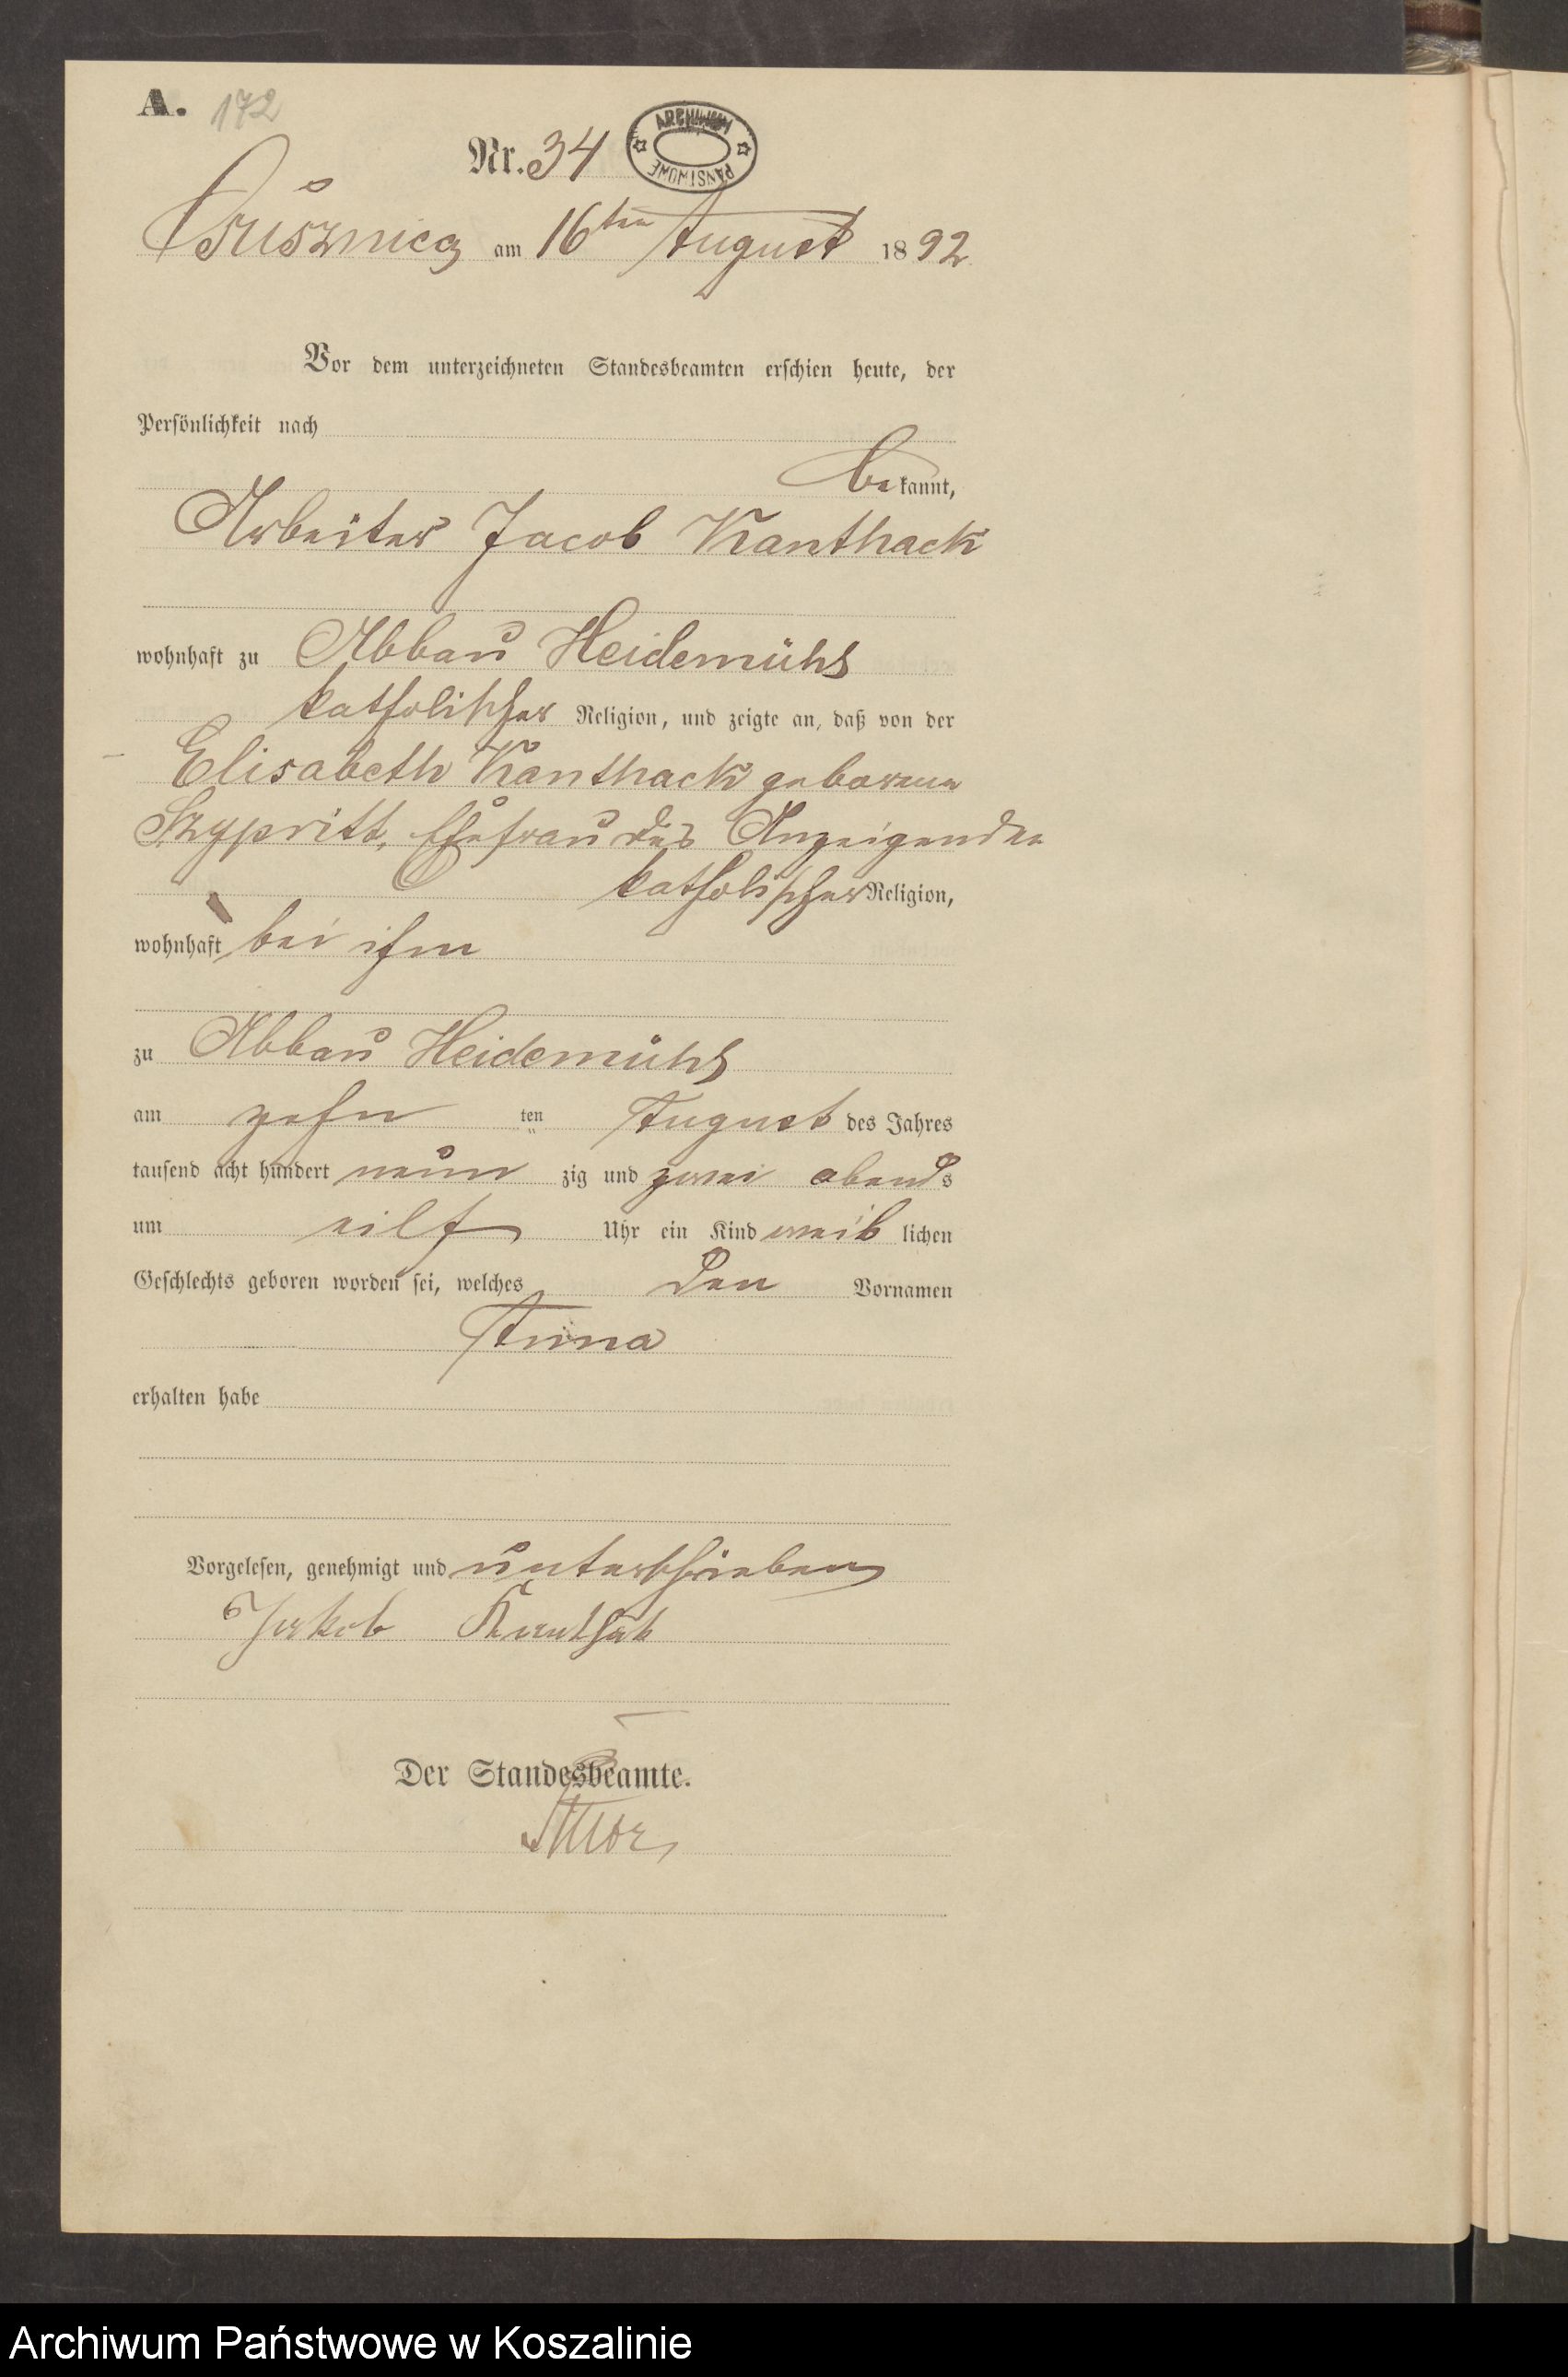 A. 172
Nr. 34
ARCHIWUM PAŃSTWOWE
am 16ten August 1892
Vor dem unterzeichneten Standesbeamten erschien heute, der
Persönlichkeit nach
bekannt,
Arbeiter Jacob Kanthack
wohnhaft zu Abbau Heidemühl
katholischer Religion, und zeigte an, daß von der
Elisabeth Kanthack geborene
Szypritt, Ehefrau des Anzeigenden
katholischer Religion,
wohnhaft bei ihm
zu Abbau Heidemühl
am zehn ten August des Jahres
tausend acht hundert neun zig und zwei abends
um eilf Uhr ein Kind weib lichen
Geschlechts geboren worden sei, welches den Vornamen
Anna
erhalten habe
Vorgelesen, genehmigt und unterschrieben
Jakob Kanthak
Der Standesbeamte.
Archiwum Państwowe w Koszalinie